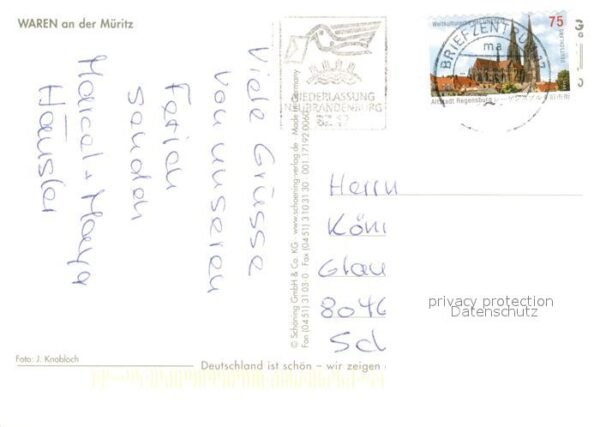 WAREN an der Müritz
Viele Grüsse
von unseren
Ferien
senden
Marcel + Maya
Häusler
NIEDERLASSUNG
NEUBRANDENBURG
BRIEFZENTRUM
ma
75
Altstadt Regensburg
© Schöning GmbH & Co. KG · www.schoening-verlag.de · Made in Germany
Fon (04 51) 31 03-0 · Fax (04 51) 31 03 1 30
Herrn
Köni
Glau
8046
Sch
privacy protection
Datenschutz
Foto: J. Knobloch
Deutschland ist schön – wir zeigen